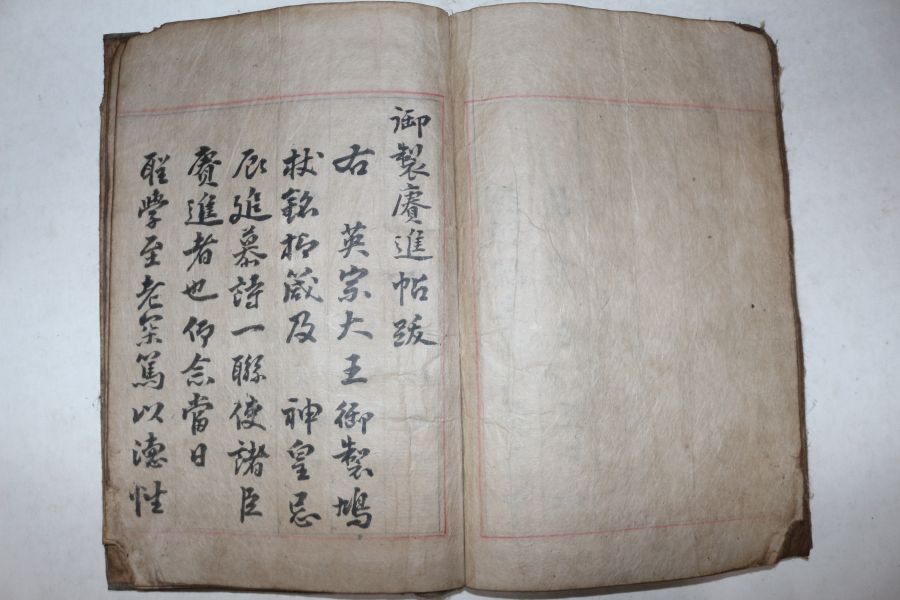 御製賡進帖跋
右 英宗大王御製鳩
杖銘抑箴及 神皇忌
辰追慕詩一聯使諸臣
賡進者也仰念當日
聖學至老深篤以德性